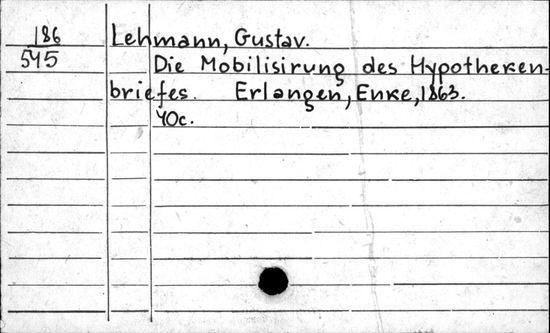 186 Lehmann, Gustav.
545 Die Mobilisirung des Hypotheken-
briefes. Erlangen, Enke, 1863.
40c.